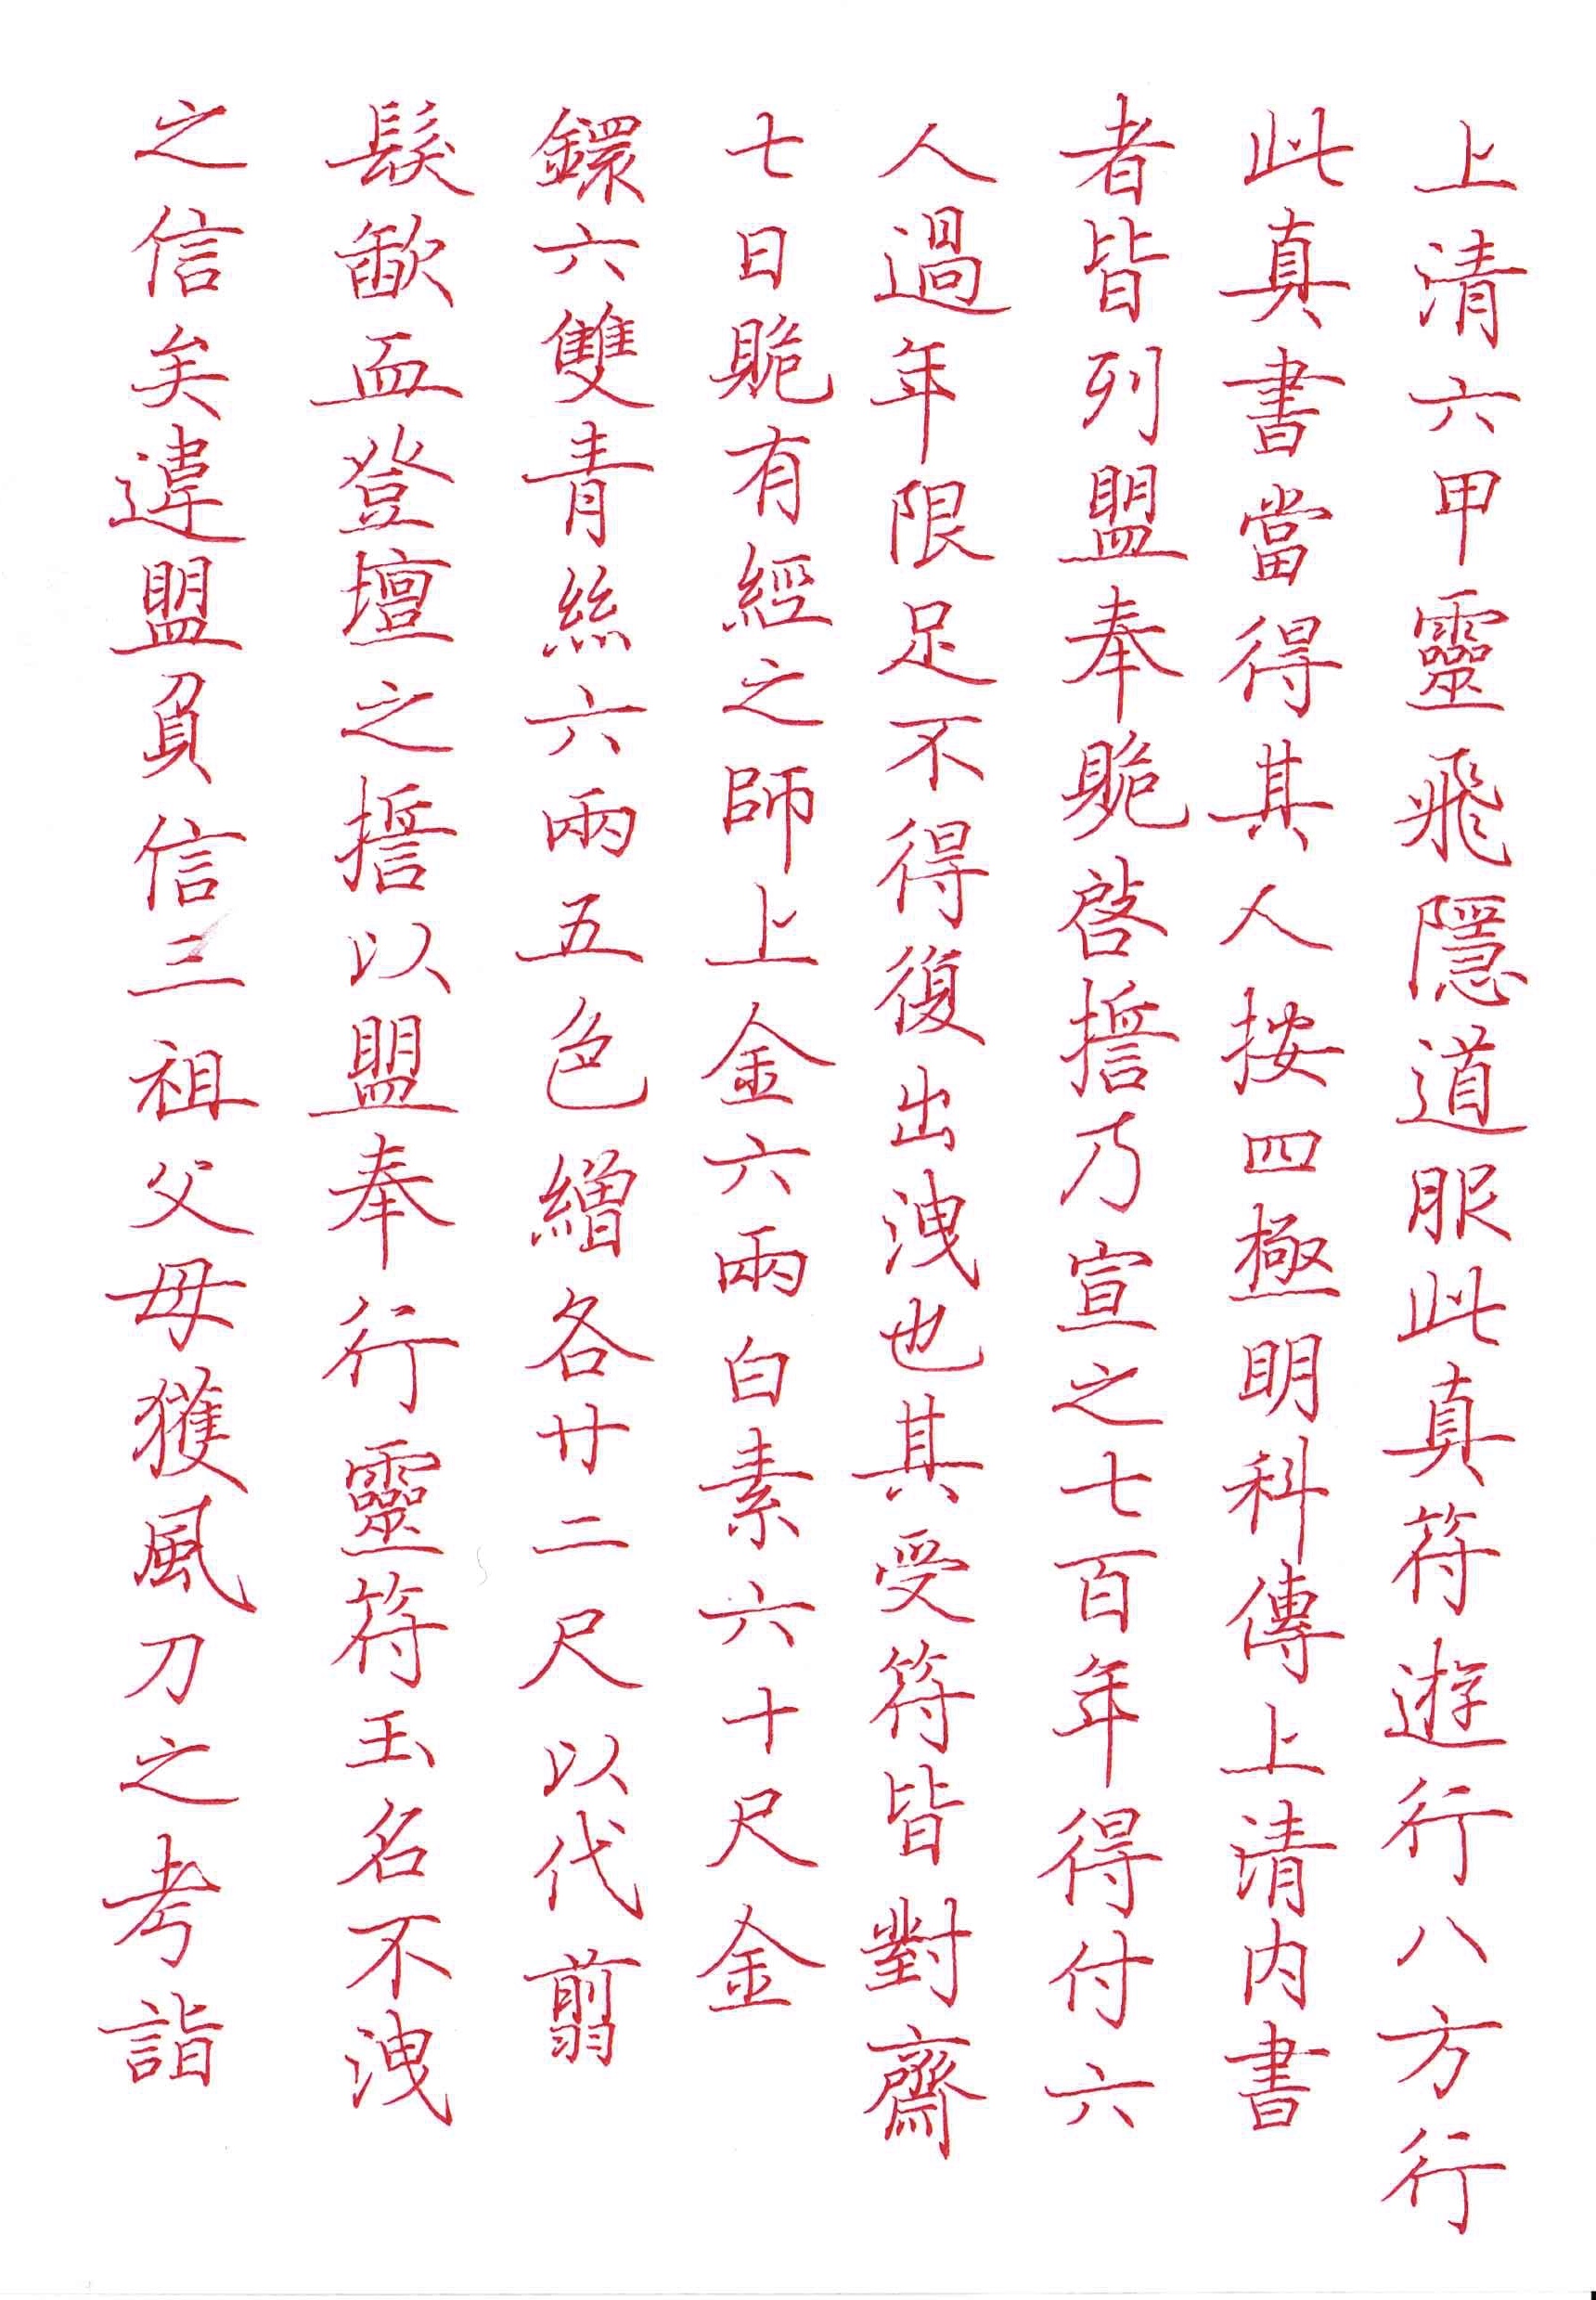 上清六甲靈飛隱道服此真符遊行八方行
此真書當得其人按四極明科傳上清内書
者皆列盟奉賝啓擔乃宣之七百年得付六
人過年限足不得復出洩也其受符皆對齋
七日賝有經之師上金六兩白素六十尺金
鐶六雙青絲六兩五色繒各廿二尺以代翦
髮歃血登壇之誓以盟奉行靈符玉名不洩
之信矣違盟負信三祖父母獲風刀之考詣